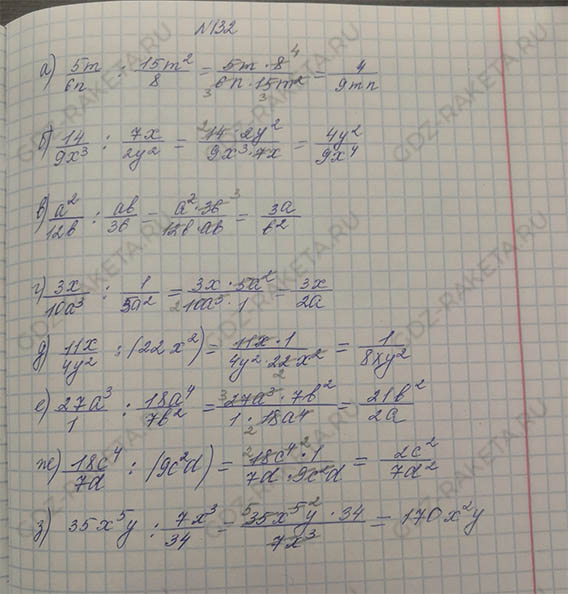 N132
а) 5m/6n : 15m²/8 = 5m · 8 4/3 6n · 15m² 3 = 4/9mn
б) 14/9x³ : 7x/2y² = 2 14 · 2y²/9x³ · 7x = 4y²/9x⁴
в) a²/12b : ab/36 = a² · 36 3/12b · ab = 3a/b²
г) 3x/10a³ : 1/5a² = 3x · 5a²/2 10a³ · 1 = 3x/2a
д) 11x/4y² : (22x²) = 11x · 1/4y² · 22x² 2 = 1/8xy²
е) 27a³/1 : 18a⁴/7b² = 3 27a³ · 7b²/1 · 18a⁴ 2 = 21b²/2a
ж) 18c⁴/7d : (9c²d) = 2 18c⁴ · 1 2/7d · 9c²d = 2c²/7d²
з) 35x⁵y : 7x³/34 = 5 35x⁵y 2 · 34/7x³ = 170x²y
GDZ-RAKETA.RU